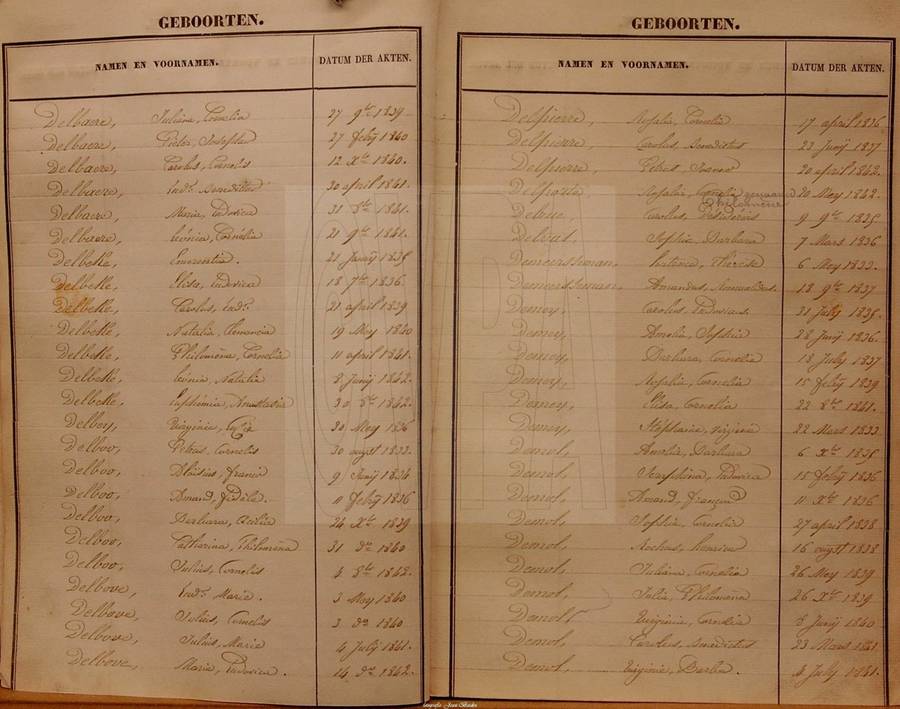 GEBOORTEN.
NAMEN EN VOORNAMEN. DATUM DER AKTEN.
Delbaere, Juliana, Cornelia 27 9bre 1839
Delbaere, Pieter, Josephus 27 feby 1840
Delbaere, Carolus, Cornelis 12 Xbre 1840.
Delbaere, Lud: Benedictus 20 april 1841.
Delbaere, Maria, Ludovica 31 8bre 1841.
Delbaere, Léonia, Cornelia 21 9bre 1841.
Delbelle, Emerentia. 21 Junij 1835
Delbelle, Elisa, Ludovica 18 7bre 1836.
Delbelle, Carolus, Lud: 21 april 1839
Delbelle, Natalia, 19 Mey 1840
Delbelle, Philomena, Cornelia 11 april 1841.
Delbelle, Léonia, Natalia 8 Junij 1842.
Delbelle, Euphémia, 30 8bre 1842.
Delbey, Virginie, 20 Mey 1836
Delboo, Petrus, Cornelis 30 augst 1833.
Delboo, Aloisius, Francis 9 Junij 1834
Delboo, Amand, Fidèle. 11 feby 1836
Delboo, Barbara, Cecilia 24 Xbre 1839
Delboo, Catharina, Philomena 31 do 1840
Delboo, Julius, Cornelis 4 8bre 1842.
Delbove, Lud: Marie. 3 Mey 1840
Delbove, Julius, Cornelis 3 do 1840
Delbove, Julius, Marie 4 July 1841.
Delbove, Maria, Ludovica. 14 do 1842.
GEBOORTEN.
NAMEN EN VOORNAMEN. DATUM DER AKTEN.
Delpierre, Rosalia, Cornelia 17 april 1836
Delpierre, Carolus, Benedictus 23 Junij 1837
Delpierre, Petrus, Joannes 20 april 1842.
Delporte, Rosalia, Cornelia genaamd 20 Mey 1842.
Philomène
Delrue, Carolus, Desiderius 9 9bre 1835
Delvat, Sophia, Barbara 7 Mars 1836
Demeersseman, Thérèse 6 Mey 1833.
Demeersseman, Amandus, 18 9bre 1837
Demey, Carolus, Ludovicus 21 July 1835.
Demey, Amelia, Sophia 28 Junij 1836.
Demey, Barbara, Cornelia 18 July 1837
Demey, Rosalia, Cornelia 15 feby 1839
Demey, Elisa, Cornelia 22 8bre 1841.
Demey, Stephania, Virginia 22 Mars 1833
Demol, Amelia, Barbara 6 Xbre 1835
Demol, Josephina, Ludovica 15 feby 1836
Demol, Amand, François 11 Xbre 1836
Demol, Sophia, Cornelia 27 april 1838
Demol, Rochus, 16 augst 1838
Demol, Juliana, Cornelia 26 Mey 1839
Demol, Julia, Philomena 26 Xbre 1839
Demol, Virginia, Cornelia 8 Junij 1840
Demol, Carolus, Benedictus 23 Mars 1841
Demol, Virginie, Barba 4 July 1841.